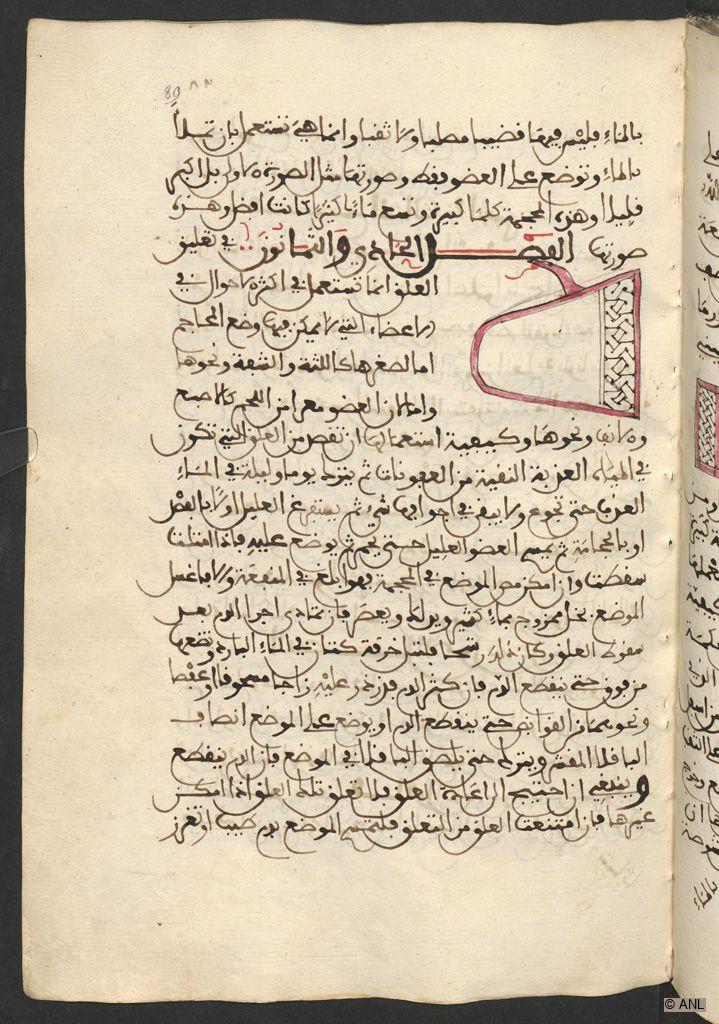 80 ٨٣
بالماء فليس فيها قضيب مصلب ولا ثقب وانما هي تستعمل بان تملأ
بالماء وتوضع على العضو فقط وصورتها مثل الصورة الاولى بلا كم
قليلا وهذه المحجمة كلما كبيرة وتسع ماء كثيرا كانت افضل وهذه
صورتها الفصل الحادي والثمانون في تعليق
العلق انما تستعمل في اكثر الاحوال في
الاعضاء التي لا يمكن فيها وضع المحاجم
اما لصغرها كاللثة والشفة ونحوها
واما لان العضو معرا من اللحم كالاصبع
والانف ونحوها وكيفية استعمالها ان تقصد من العلق التي تكون
في المياه العذبة النقية من العفونات ثم يترك يوما وليلة في الماء
العذب حتى تجوع ولا يبقى في اجوافها شيء ثم يستفرغ العليل اولا بالفصد
او بالحجامة ثم يمسح العضو العليل حتى يحمر ثم يوضع عليه فاذا امتلت
سقطت وان امكن مص الموضع في المحجمة فهو ابلغ في المنفعة والا فاغسل
الموضع بخل ممزوج بماء كثير ويدلك ويعصر فان تمادى اجرا الدم بعد
سقوط العلق وكان ذلك رشحا فلتبل خرقة كتان في الماء البارد وتضعها
من فوق حتى ينقطع الدم فان كثر الدم فذر عليه زاجا مسحوقا او عفصا
ونحوهما من القوابض حتى ينقطع الدم او يوضع على الموضع انصاف
الباقلا المقشر ويترك حتى يلصق الباقلا في الموضع فان الدم ينقطع
وينبغي ان احتيج الى اعادة العلق فلا تعلق تلك العلق اذا امكن
غيرها فان امتنعت العلق من التعلق فلتمسح الموضع بدم طيب او تغرز
© ANL